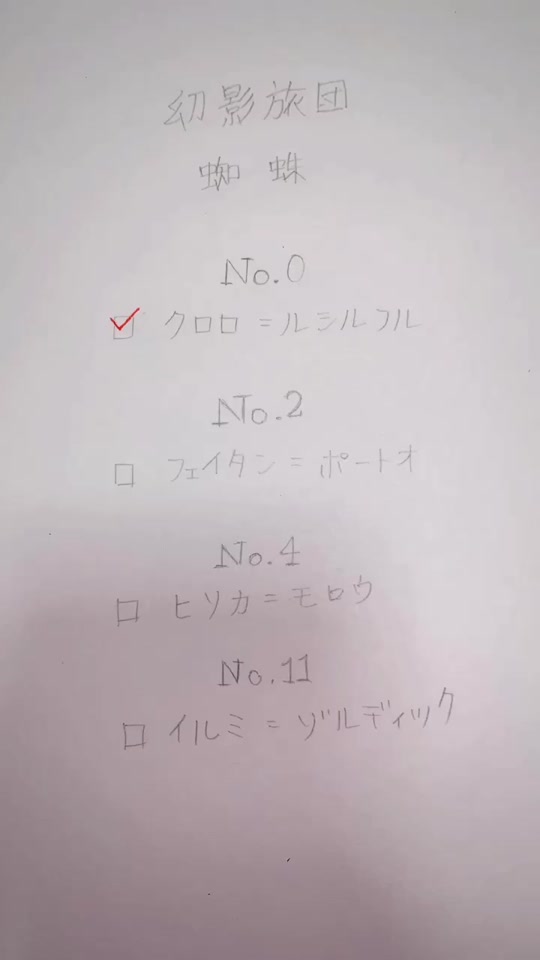 幻影旅団
蜘蛛
No.0
☑ クロロ=ルシルフル
No.2
□ フェイタン=ポートオ
No.4
□ ヒソカ=モロウ
No.11
□ イルミ=ゾルディック